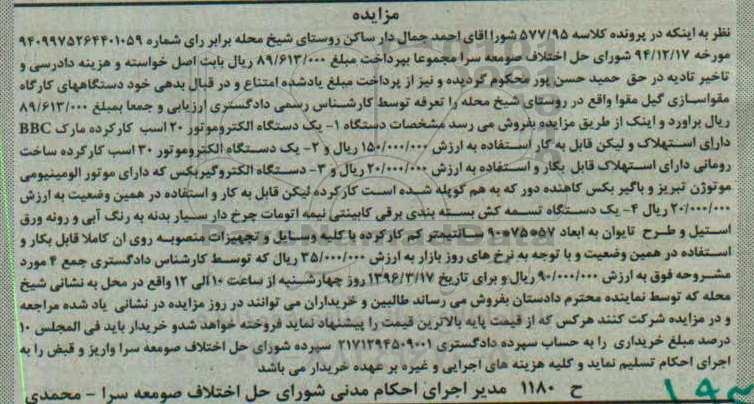 مزایده
نظر به اینکه در پرونده کلاسه ۵۷۷/۹۵ شورا اقای احمد جمال دار ساکن روستای شیخ محله برابر رای شماره ۹۴۰۹۹۷۵۲۶۴۴۰۱۰۵۹
مورخه ۹۴/۱۲/۱۷ شورای حل اختلاف صومعه سرا مجموعا بپرداخت مبلغ ۸۹/۶۱۳/۰۰۰ ریال بابت اصل خواسته و هزینه دادرسی و
تاخیر تادیه در حق حمید حسن پور محکوم گردیده و نیز از پرداخت مبلغ یادشده امتناع و در قبال بدهی خود دستگاههای کارگاه
مقواسازی گیل مقوا واقع در روستای شیخ محله را تعرفه توسط کارشناس رسمی دادگستری ارزیابی و جمعا بمبلغ ۸۹/۶۱۳/۰۰۰
ریال براورد و اینک از طریق مزایده بفروش می رسد مشخصات دستگاه ۱- یک دستگاه الکتروموتور ۲۰ اسب کارکرده مارک BBC
دارای استهلاک و لیکن قابل به کار استفاده به ارزش ۱۵۰/۰۰۰/۰۰۰ ریال و ۲- یک دستگاه الکتروموتور ۳۰ اسب کارکرده ساخت
رومانی دارای استهلاک قابل بکار و استفاده به ارزش ۲۰/۰۰۰/۰۰۰ ریال و ۳- دستگاه الکتروگیربکس که دارای موتور الومینیومی
موتوژن تبریز و باگیر بکس کاهنده دور که به هم کوپله شده است کارکرده لیکن قابل به کار و استفاده در همین وضعیت به ارزش
۲۰/۰۰۰/۰۰۰ ریال ۴- یک دستگاه تسمه کش بسته بندی برقی کابینتی نیمه اتومات چرخ دار سیار بدنه به رنگ آبی و رونه ورق
استیل و طرح تایوان به ابعاد ۵۷*۷۵*۹۰ سانتیمتر کم کارکرده با کلیه وسایل و تجهیزات منصوبه روی ان کاملا قابل بکار و
استفاده در همین وضعیت و با توجه به نرخ های روز بازار به ارزش ۳۵/۰۰۰/۰۰۰ ریال که توسط کارشناس دادگستری جمع ۴ مورد
مشروحه فوق به ارزش ۹۰/۰۰۰/۰۰۰ ریال و برای تاریخ ۱۳۹۶/۳/۱۷ روز چهارشنبه از ساعت ۱۰ الی ۱۲ واقع در محل به نشانی شیخ
محله که توسط نماینده محترم دادستان بفروش می رساند طالبین و خریداران می توانند در روز مزایده در نشانی یاد شده مراجعه
و در مزایده شرکت کنند هرکس که از قیمت پایه بالاترین قیمت را پیشنهاد نماید فروخته خواهد شدو خریدار باید فی المجلس ۱۰
درصد مبلغ خریداری را به حساب سپرده دادگستری ۲۱۷۱۲۹۴۵۰۹۰۰۱ سپرده شورای حل اختلاف صومعه سرا واریز و قبض را به
اجرای احکام تسلیم نماید و کلیه هزینه های اجرایی و غیره بر عهده خریدار می باشد
ح ۱۱۸۰ مدیر اجرای احکام مدنی شورای حل اختلاف صومعه سرا - محمدی